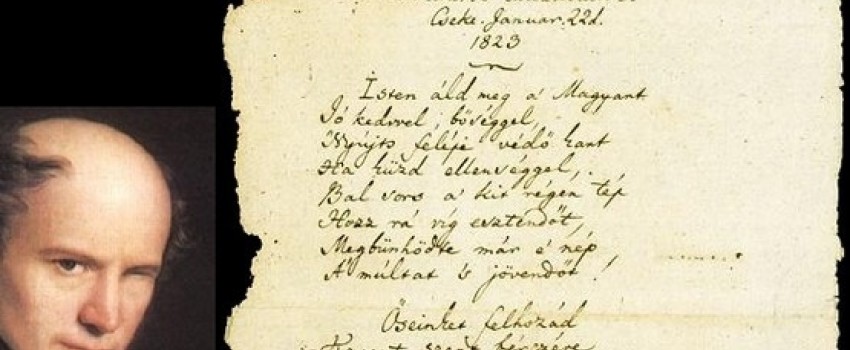 Cseke. Januar. 22d.
1823
Isten áld meg a' Magyart
Jó kedvvel, bőséggel,
Nyújts feléje védő kart
Ha küzd ellenséggel,
Bal sors a' kit régen tép
Hozz rá víg esztendőt,
Megbűnhődte már e' nép
A' múltat 's jövendőt!
Őseinket felhozád
szent bérczére